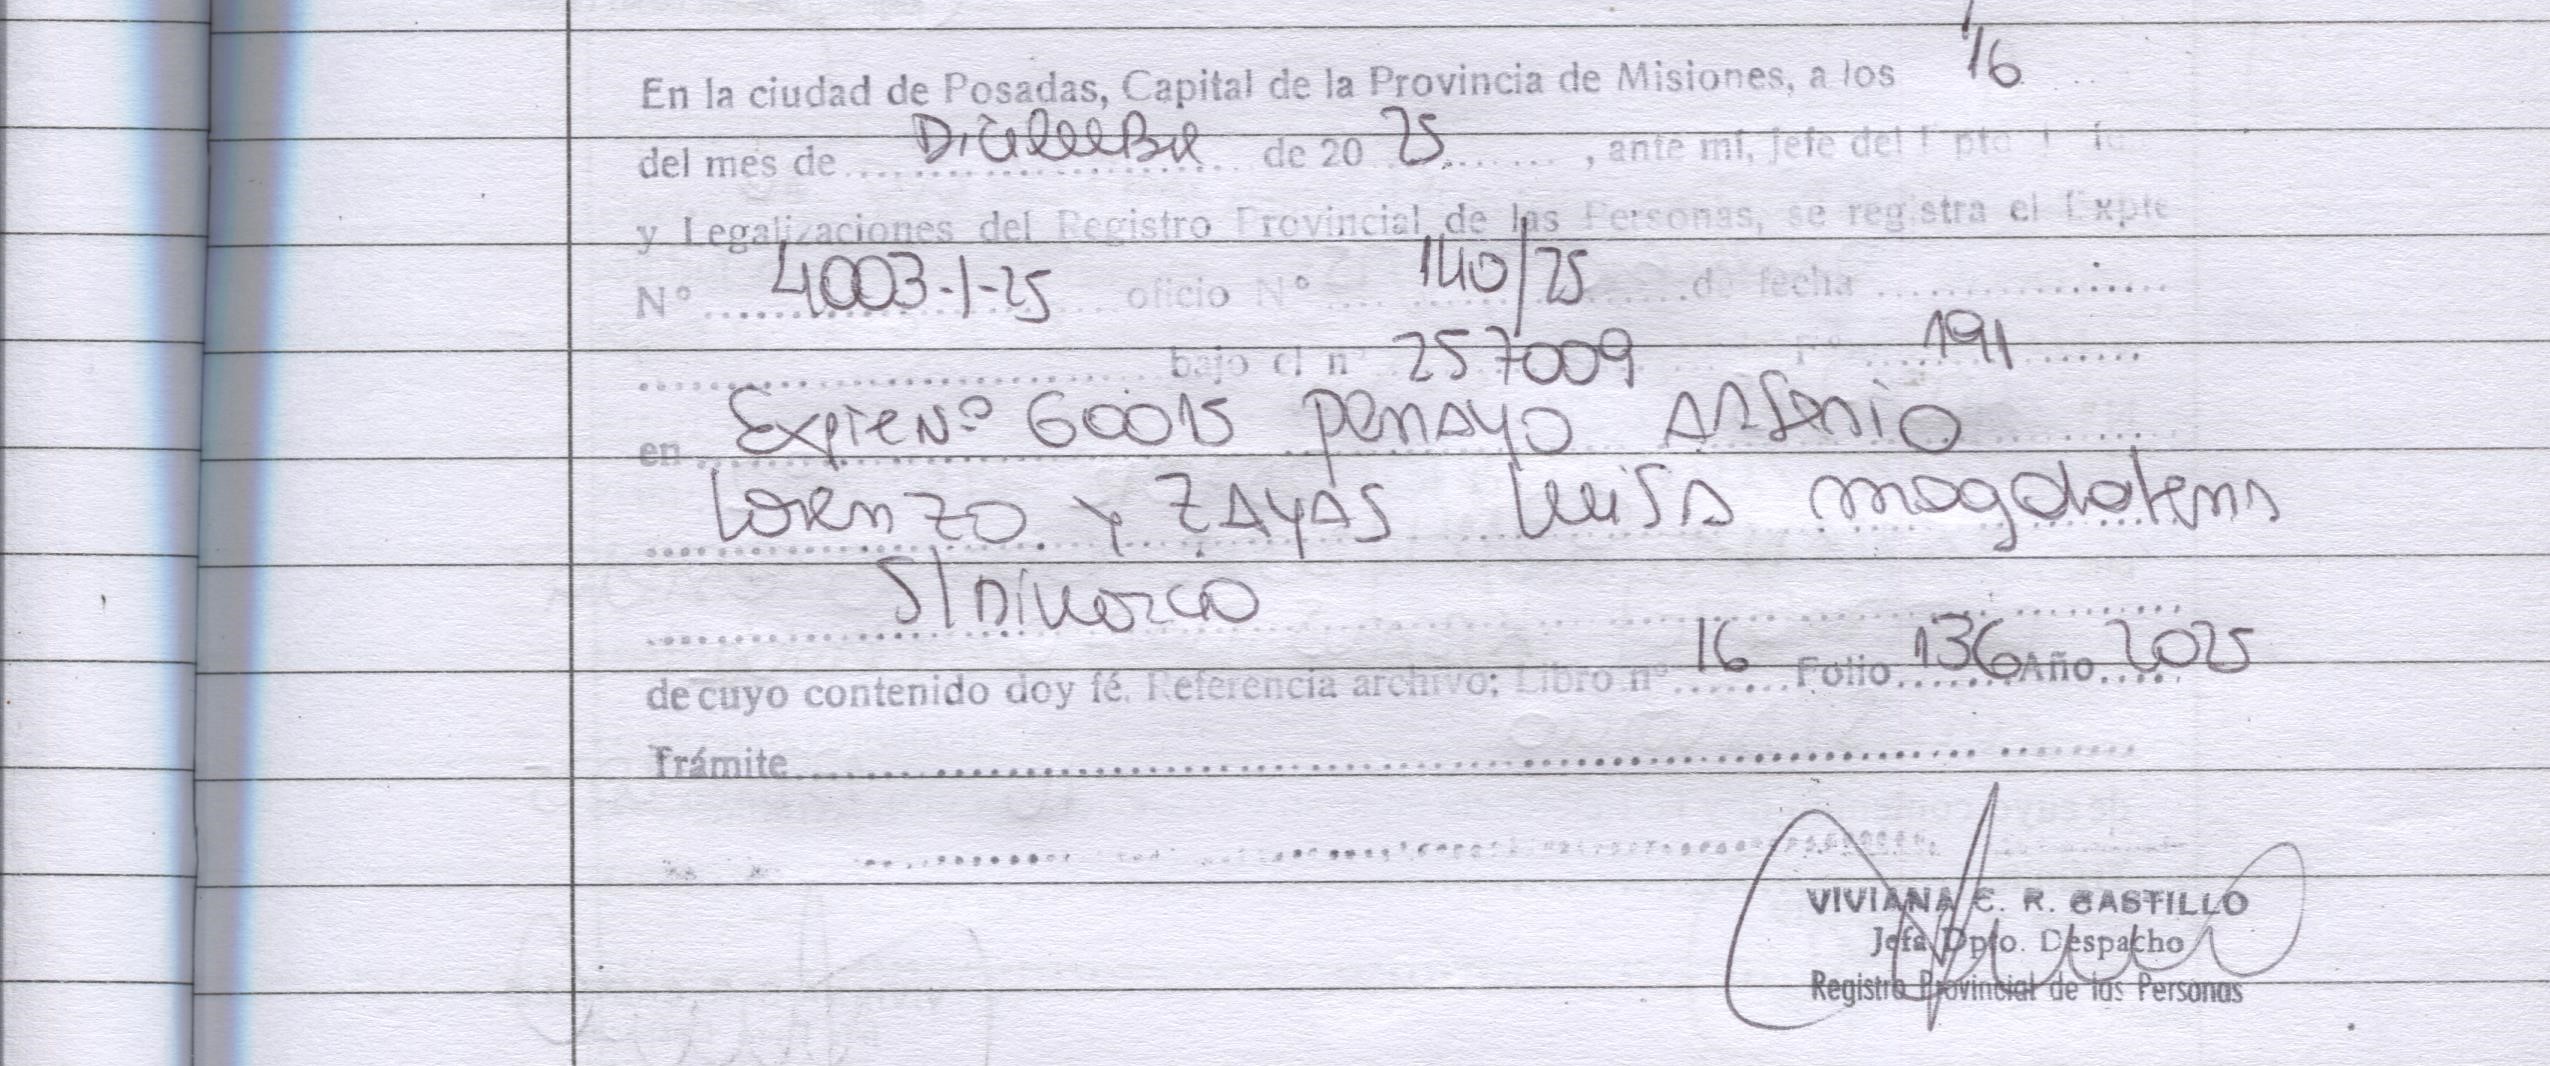 En la ciudad de Posadas, Capital de la Provincia de Misiones, a los 16
del mes de Diciembre de 20 25 , ante mí, Jefe del
y Legalizaciones del Registro Provincial de las Personas, se registra el Expte
Nº 4003-1-25 oficio Nº 140/25 de fecha
bajo el nº 257009 Fº 191
en Expte Nº 60015 Penayo Arsenio
Lorenzo y Zayas Luisa Magdalena
S/Divorcio
de cuyo contenido doy fé. Referencia archivo; Libro nº 16 Folio 136 Año 2025
Trámite
VIVIANA E. R. CASTILLO
Jefa Dpto. Despacho
Registro Provincial de las Personas